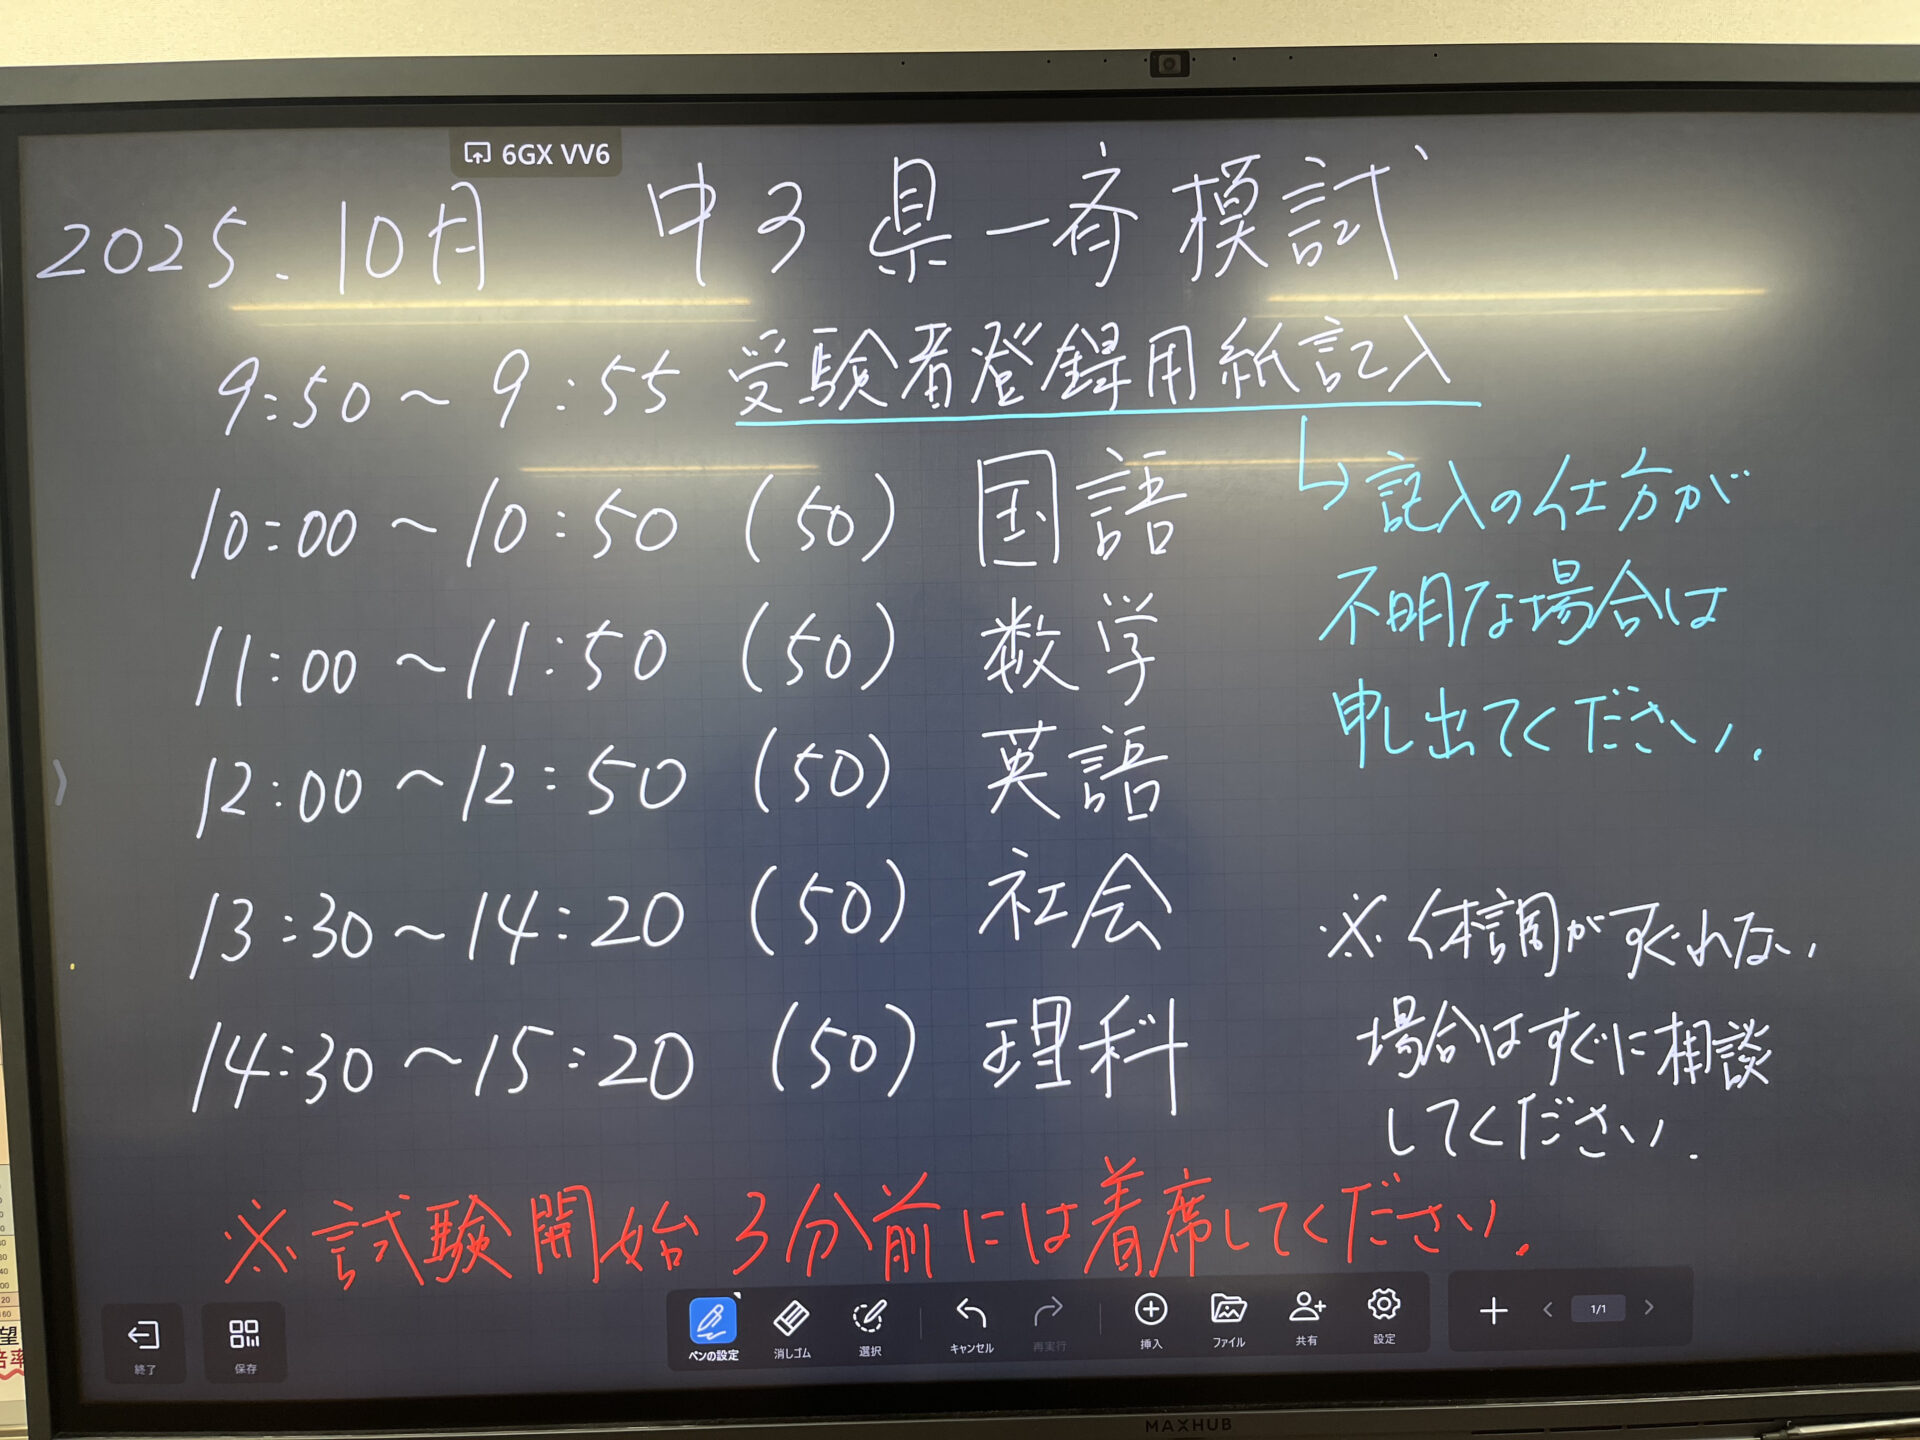 6GX VV6
2025.10月 中3 県一斉模試
9:50～9:55 受験者登録用紙記入
10:00～10:50 (50) 国語
↳記入の仕方が
不明な場合は
申し出てください.
11:00～11:50 (50) 数学
12:00～12:50 (50) 英語
13:30～14:20 (50) 社会
14:30～15:20 (50) 理科
※体調がすぐれない
場合はすぐに相談
してください.
※試験開始3分前には着席してください.
終了
保存
ペンの設定
消しゴム
選択
キャンセル
再実行
挿入
ファイル
共有
設定
1/1
MAXHUB